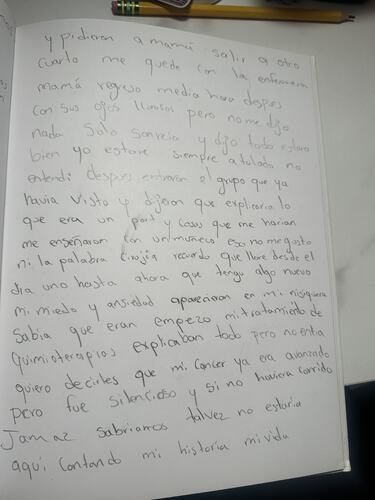 y pidieron a mamá salir a otro
cuarto me quede con la enfermera
mamá regreso media hora despues
con sus ojos llorosos pero no me dijo
nada solo sonreia y dijo todo estara
bien yo estare siempre a tulado no
entendi despues entraron el grupo que ya
havia visto y dijeron que explicaria lo
que era un port y cosas que me harian
me enseñaron con un muñeco eso no me gusto
ni la palabra cirujia recuerdo que llore desde el
dia uno hasta ahora que tengo algo nuevo
mi miedo y ansiedad aparecieron en mi nisiquera
sabia que eran empezo mi tratamiento de
Quimioterapias explicaban todo pero no entia
quiero decirles que mi cancer ya era avanzado
pero fue silencioso y si no huviera corrido
Jamaz sabriamos talvez no estaria
aqui contando mi historia mi vida